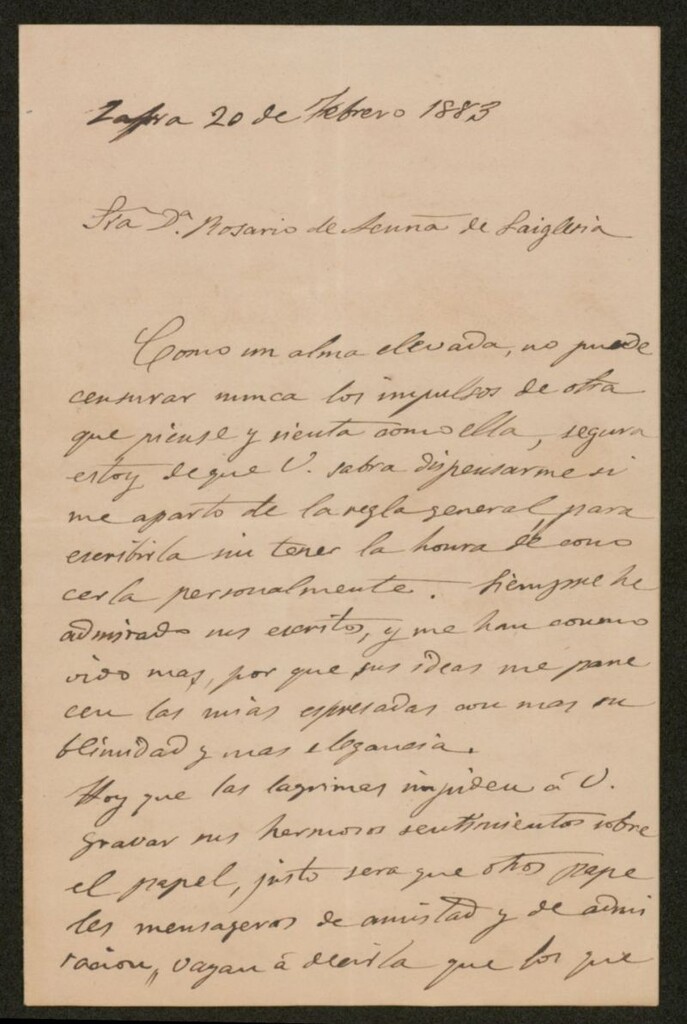 Zafra 20 de Febrero 1883
Sra Da. Rosario de Acuña de Laiglesia
Como un alma elevada, no puede
censurar nunca los impulsos de otra
que piense y sienta como ella, segura
estoy de que V. sabra dispensarme si
me aparto de la regla general, para
escribirla sin tener la honra de cono
cerla personalmente. Siempre he
admirado sus escritos, y me han conmo
vido mas, por que sus ideas me pare
cen las mias espresadas con mas su
blimidad y mas elegancia.
Hoy que las lagrimas impiden á V.
gravar sus hermosos sentimientos sobre
el papel, justo sera que otros pape
les mensageros de amistad y de admi
racion, vayan á decirla que los que